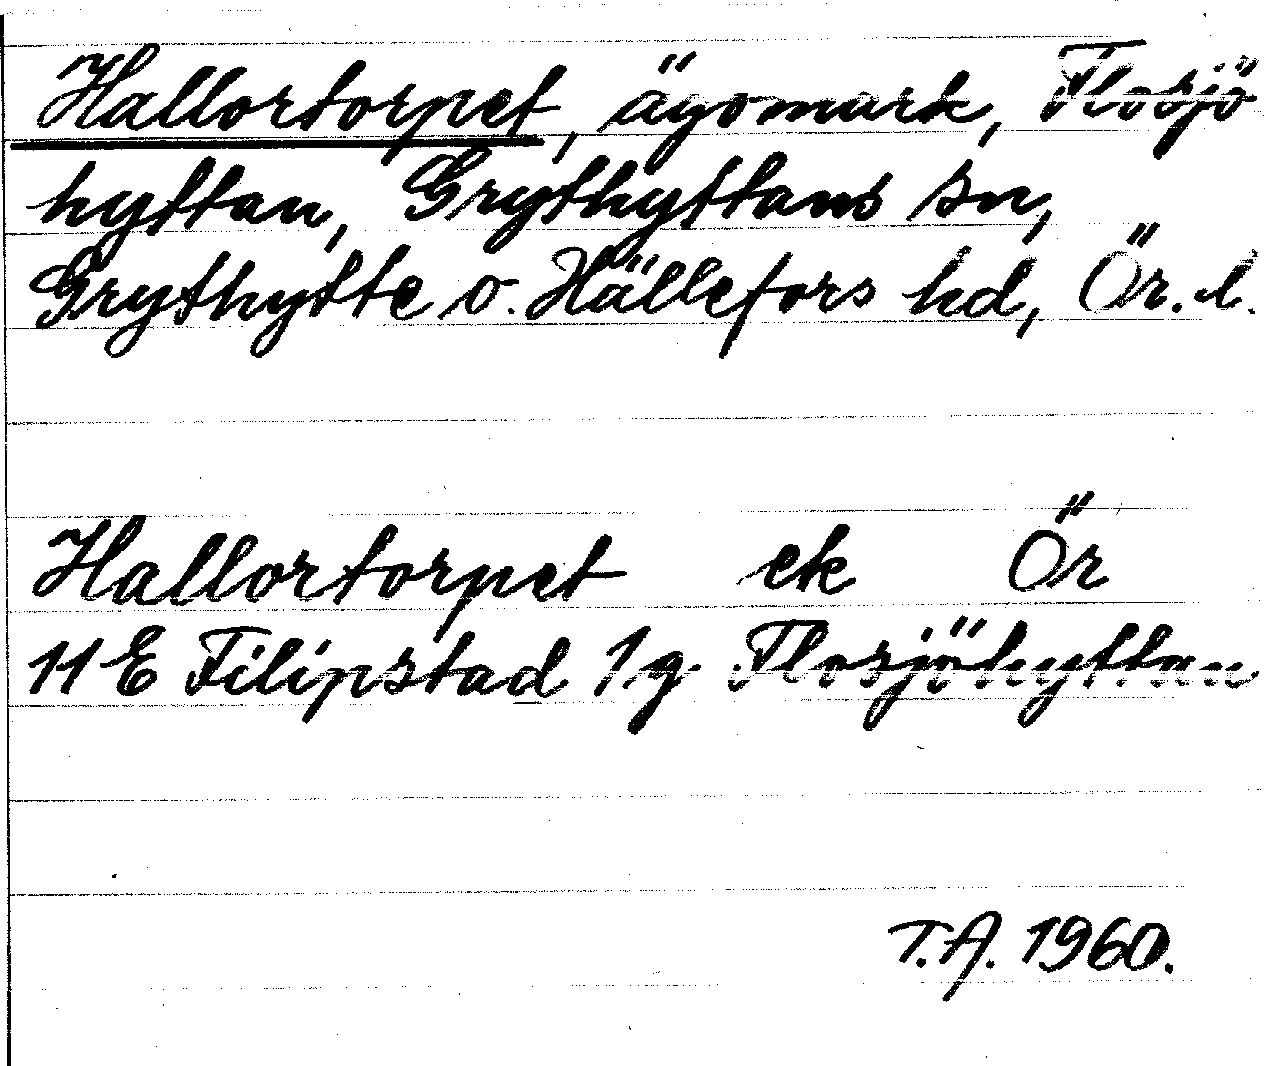 Hallortorpet, ägomark, Flosjö
hyttan, Grythyttans sn,
Grythytte o. Hällefors hd, Ör. l.
Hallortorpet ek Ör
11 E Filipstad 1 g Flosjöhyttan
T.A. 1960.